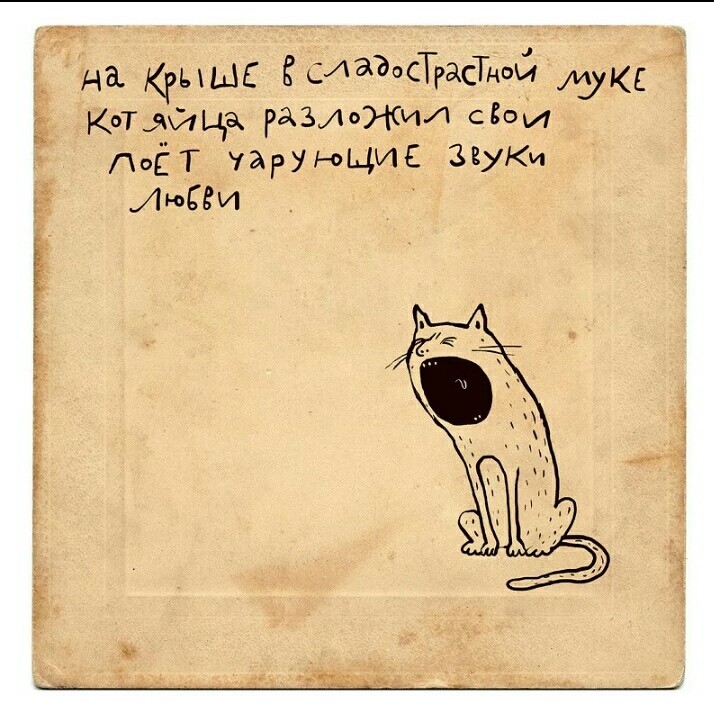 на крыше в сладострастной муке
кот яйца разложил свои
поёт чарующие звуки
любви